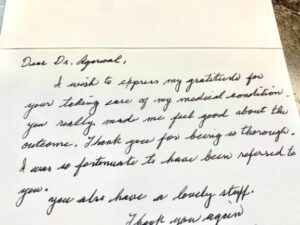 Dear Dr. Agarwal,
I wish to express my gratitude for
your taking care of my medical condition.
you really made me feel good about the
outcome. Thank you for being so thorough.
I was so fortunate to have been referred to
you.
you also have a lovely staff.
Thank you again